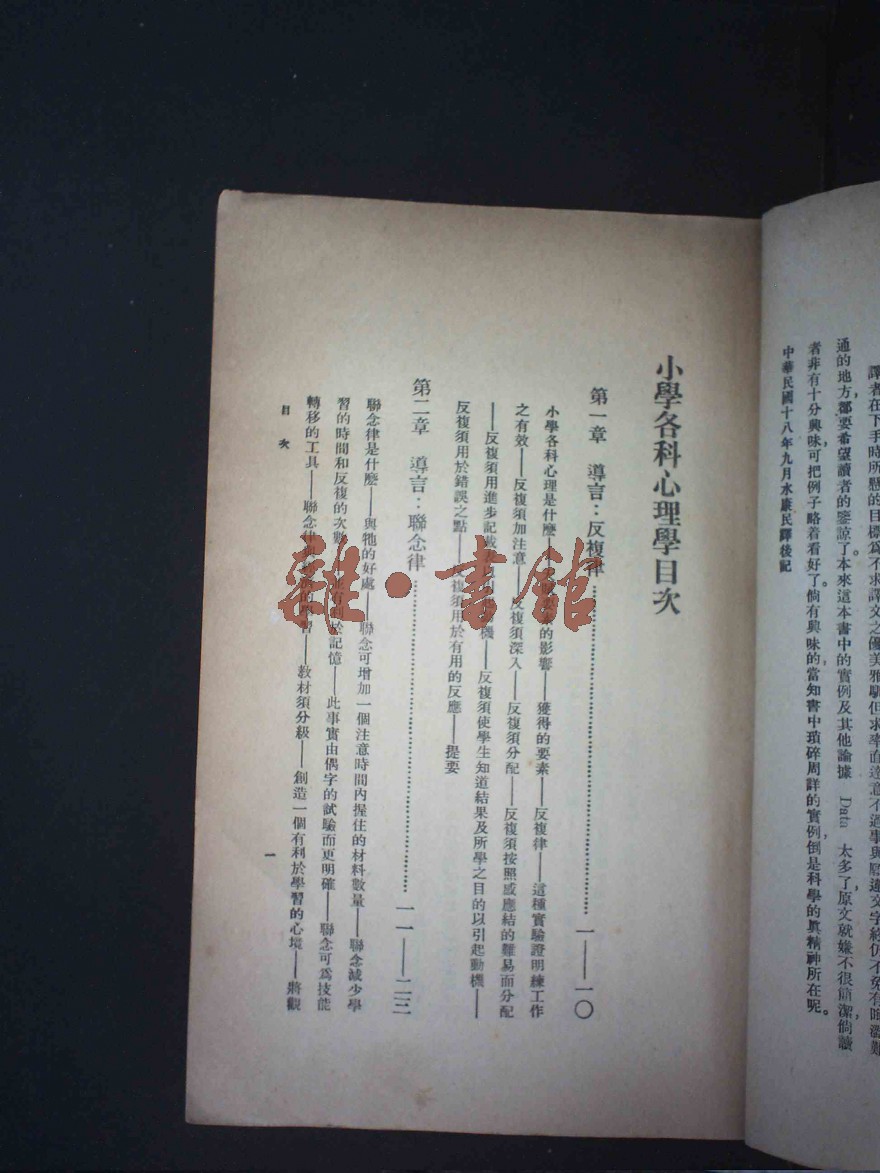 譯者在下手時所懸的目標爲不求譯文之優美雅馴但求率直達意不過事與願違文字終仍不免有晦澀難
通的地方，都要希望讀者的鑒諒了。本來這本書中的實例及其他論據 Data 太多了，原文就嫌不很簡潔，倘讀
者非有十分興味，可把例子略着看好了。倘有興味的，當知書中瑣碎周詳的實例，倒是科學的眞精神所在呢。
中華民國十八年九月水康民譯後記
小學各科心理學目次
第一章 導言：反複律……一——一〇
小學各科心理是什麼——的影響——獲得的要素——反複律——這種實驗證明練工作
之有效——反複須加注意——反複須深入——反複須分配——反複須按照感應結的難易而分配
——反複須用進步記載機——反複須使學生知道結果及所學之目的以引起動機——
反複須用於錯誤之點——反複須用於有用的反應——提要
第二章 導言：聯念律……一一——二三
聯念律是什麼——與牠的好處——聯念可增加一個注意時間內握住的材料數量——聯念減少學
習的時間和反復的次數——並有利於記憶——此事實由偶字的試驗而更明確——聯念可爲技能
轉移的工具——聯念律與的學習——教材須分級——創造一個有利於學習的心境——將觀
目次
一
雜·書館